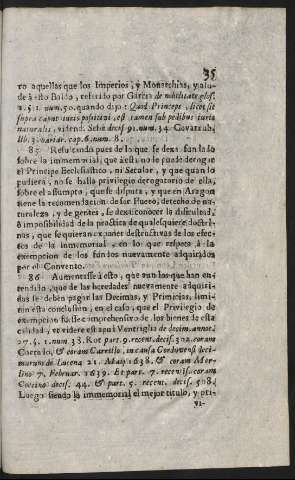 35
ro aquellas que los Imperios, y Monarchias, y alu-
de à esto Baldo, referido por Garcia de nobilitate glos.
2. §. 1. num. 50. quando dijo: Quod Princeps, licet sit
supra caput iuris positivi, est tamen sub pedibus iuris
naturalis, vidend. Sese decis. 91. num. 34. Covarrub.
lib. 3. variar. cap. 6. num. 8.
85 Resultando pues de lo que se dexa fundado
sobre la immemorial, que à esta no le puede derogar
el Principe Ecclesiastico, ni Secular, y que quando
pudiera, no se halla privilegio derogatorio de ella,
sobre el assumpto, que se disputa, y que en Aragon
tiene la recomendacion de ser Fuero, derecho de na-
turaleza, y de gentes, se dexa conocer la dificultad,
ò impossibilidad de la practica de qualesquiere doctri-
nas, que se quieran exponer destructivas de los efec-
tos de la immemorial, en lo que respeta à la
exempcion de los fundos nuevamente adquiridos
por el Convento.
86 Aumentasse à esto, que aun los que han en-
tendido, que de las heredades nuevamente adquiri-
das se deben pagar las Decimas, y Primicias, limi-
tan esta conclusion, en el caso, que el Privilegio de
exempcion fuesse comprehensivo de los bienes de esta
calidad, ut videre est apud Ventriglia de decim. annot.
27. §. 1. num. 38. Rot. part. 9. recent. decis. 302. coram
Coccino, & coram Carrillo, in causa Cordovensi deci-
marum de Lucena 21. Maij 1638. & coram Mer-
lino 7. Februar. 1639. Et part. 7. recentis. coram
Coccino decis. 44. & part. 5. recent. decis. 508.
Luego siendo la immemorial el mejor titulo, y pri-
vi-